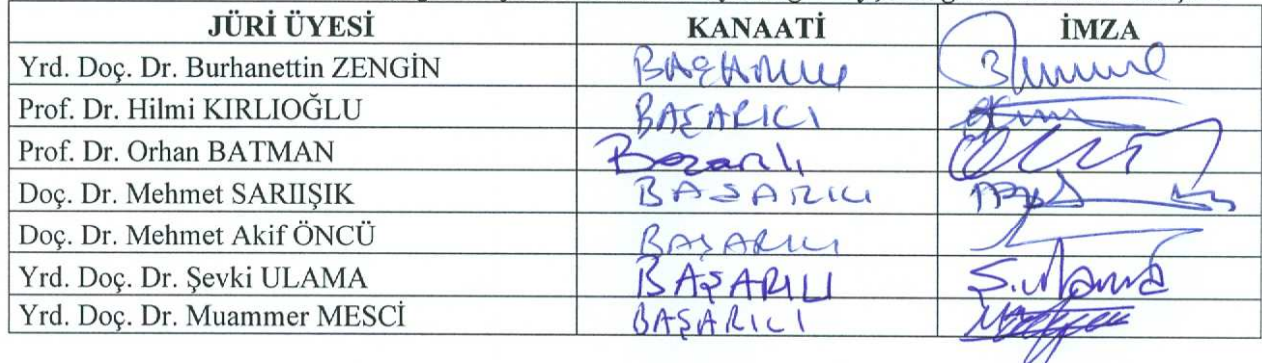 JÜRİ ÜYESİ KANAATİ İMZA
Yrd. Doç. Dr. Burhanettin ZENGİN BAŞARILI
Prof. Dr. Hilmi KIRLIOĞLU BAŞARILI
Prof. Dr. Orhan BATMAN Başarılı
Doç. Dr. Mehmet SARIIŞIK BASARILI
Doç. Dr. Mehmet Akif ÖNCÜ BAŞARILI
Yrd. Doç. Dr. Şevki ULAMA BAŞARILI S.ulama
Yrd. Doç. Dr. Muammer MESCİ BAŞARILI